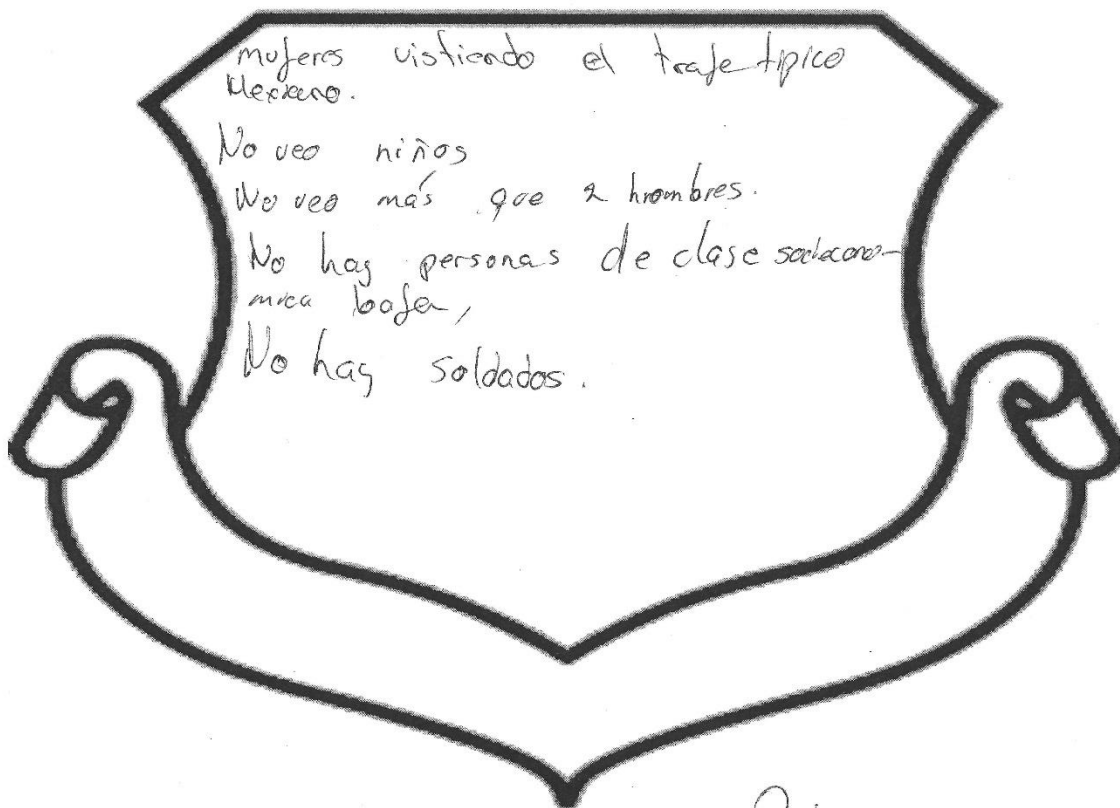 mujeres vistiendo el traje típico
Mexicano.
No veo niños
No veo más que 2 hrombres.
No hay personas de clase socioecono-
mica baja,
No hay soldados.